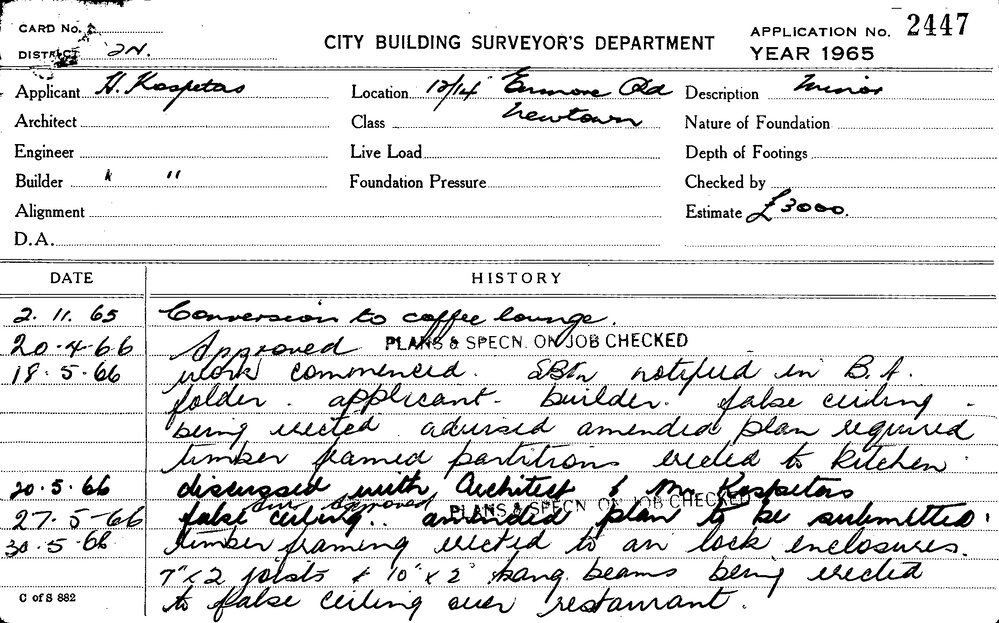 CARD No.
DISTRICT 2N.
CITY BUILDING SURVEYOR'S DEPARTMENT
APPLICATION No. 2447
YEAR 1965
Applicant H. Kospetas
Location 12/14 Enmore Rd
Newtown
Description Minor
Architect
Class
Nature of Foundation
Engineer
Live Load
Depth of Footings
Builder "
Foundation Pressure
Checked by
Alignment
Estimate £3000.
D.A.
DATE HISTORY
2. 11. 65 Conversion to coffee lounge.
20.4.66 Approved PLANS & SPECN. ON JOB CHECKED
18.5.66 work commenced. notified in B.A.
folder. applicant - builder. false ceiling -
being erected advised amended plan required
timber framed partitions erected to kitchen
20.5.66 discussed with Architect & Mr. Kospetas
approved PLANS & SPECN ON JOB CHECKED
27.5.66 false ceiling.. amended plan to be submitted.
30.5.66 timber framing erected to air lock enclosures.
7" x 2 joists & 10" x 2" hang. beams being erected
to false ceiling over restaurant.
C of S 882